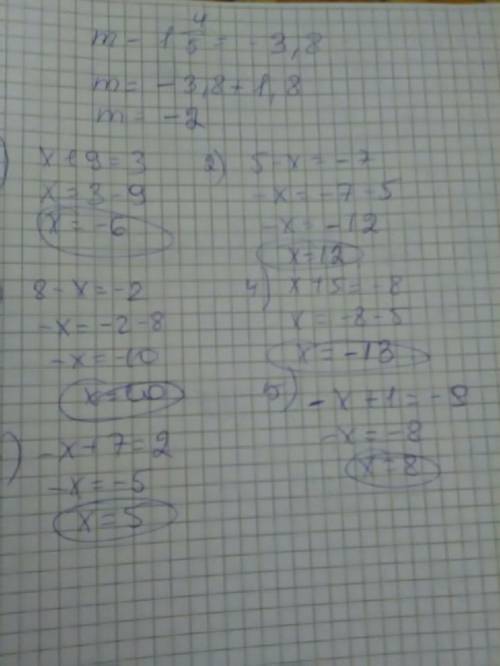 m - 1 4/5 = -3,8
m = -3,8 + 1,8
m = -2
) x + 9 = 3
x = 3 - 9
x = -6
2) 5 - x = -7
-x = -7 - 5
-x = -12
x = 12
8 - x = -2
-x = -2 - 8
-x = -10
x = 10
4) x + 5 = -8
x = -8 - 5
x = -13
) -x + 7 = 2
-x = -5
x = 5
5) -x + 1 = -9
-x = -8
x = 8